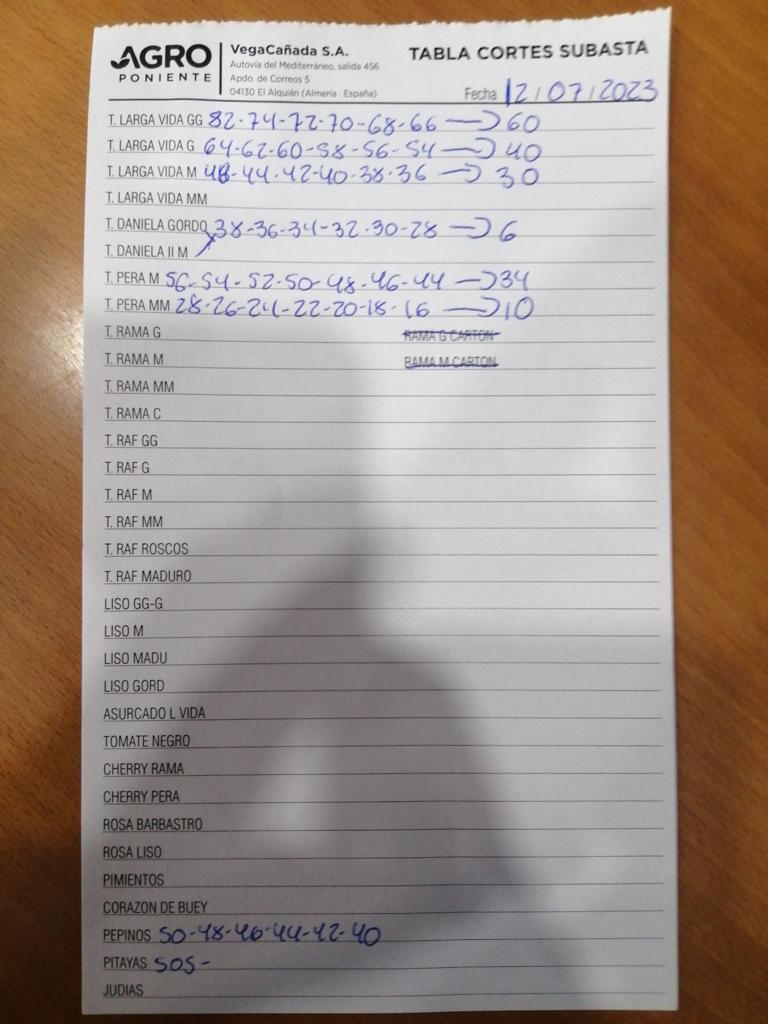 AGRO PONIENTE
VegaCañada S.A.
Autovía del Mediterráneo, salida 456
Apdo. de Correos 5
04130 El Alquián (Almería - España)
TABLA CORTES SUBASTA
Fecha 12/07/2023
T. LARGA VIDA GG 82-74-72-70-68-66 → 60
T. LARGA VIDA G 64-62-60-58-56-54 → 40
T. LARGA VIDA M 48-44-42-40-38-36 → 30
T. LARGA VIDA MM
T. DANIELA GORDO 38-36-34-32-30-28 → 6
T. DANIELA II M
T. PERA M 56-54-52-50-48-46-44 → 34
T. PERA MM 28-26-24-22-20-18-16 → 10
T. RAMA G RAMA G CARTON
T. RAMA M RAMA M CARTON
T. RAMA MM
T. RAMA C
T. RAF GG
T. RAF G
T. RAF M
T. RAF MM
T. RAF ROSCOS
T. RAF MADURO
LISO GG-G
LISO M
LISO MADU
LISO GORD
ASURCADO L VIDA
TOMATE NEGRO
CHERRY RAMA
CHERRY PERA
ROSA BARBASTRO
ROSA LISO
PIMIENTOS
CORAZON DE BUEY
PEPINOS 50-48-46-44-42-40
PITAYAS 505-
JUDIAS